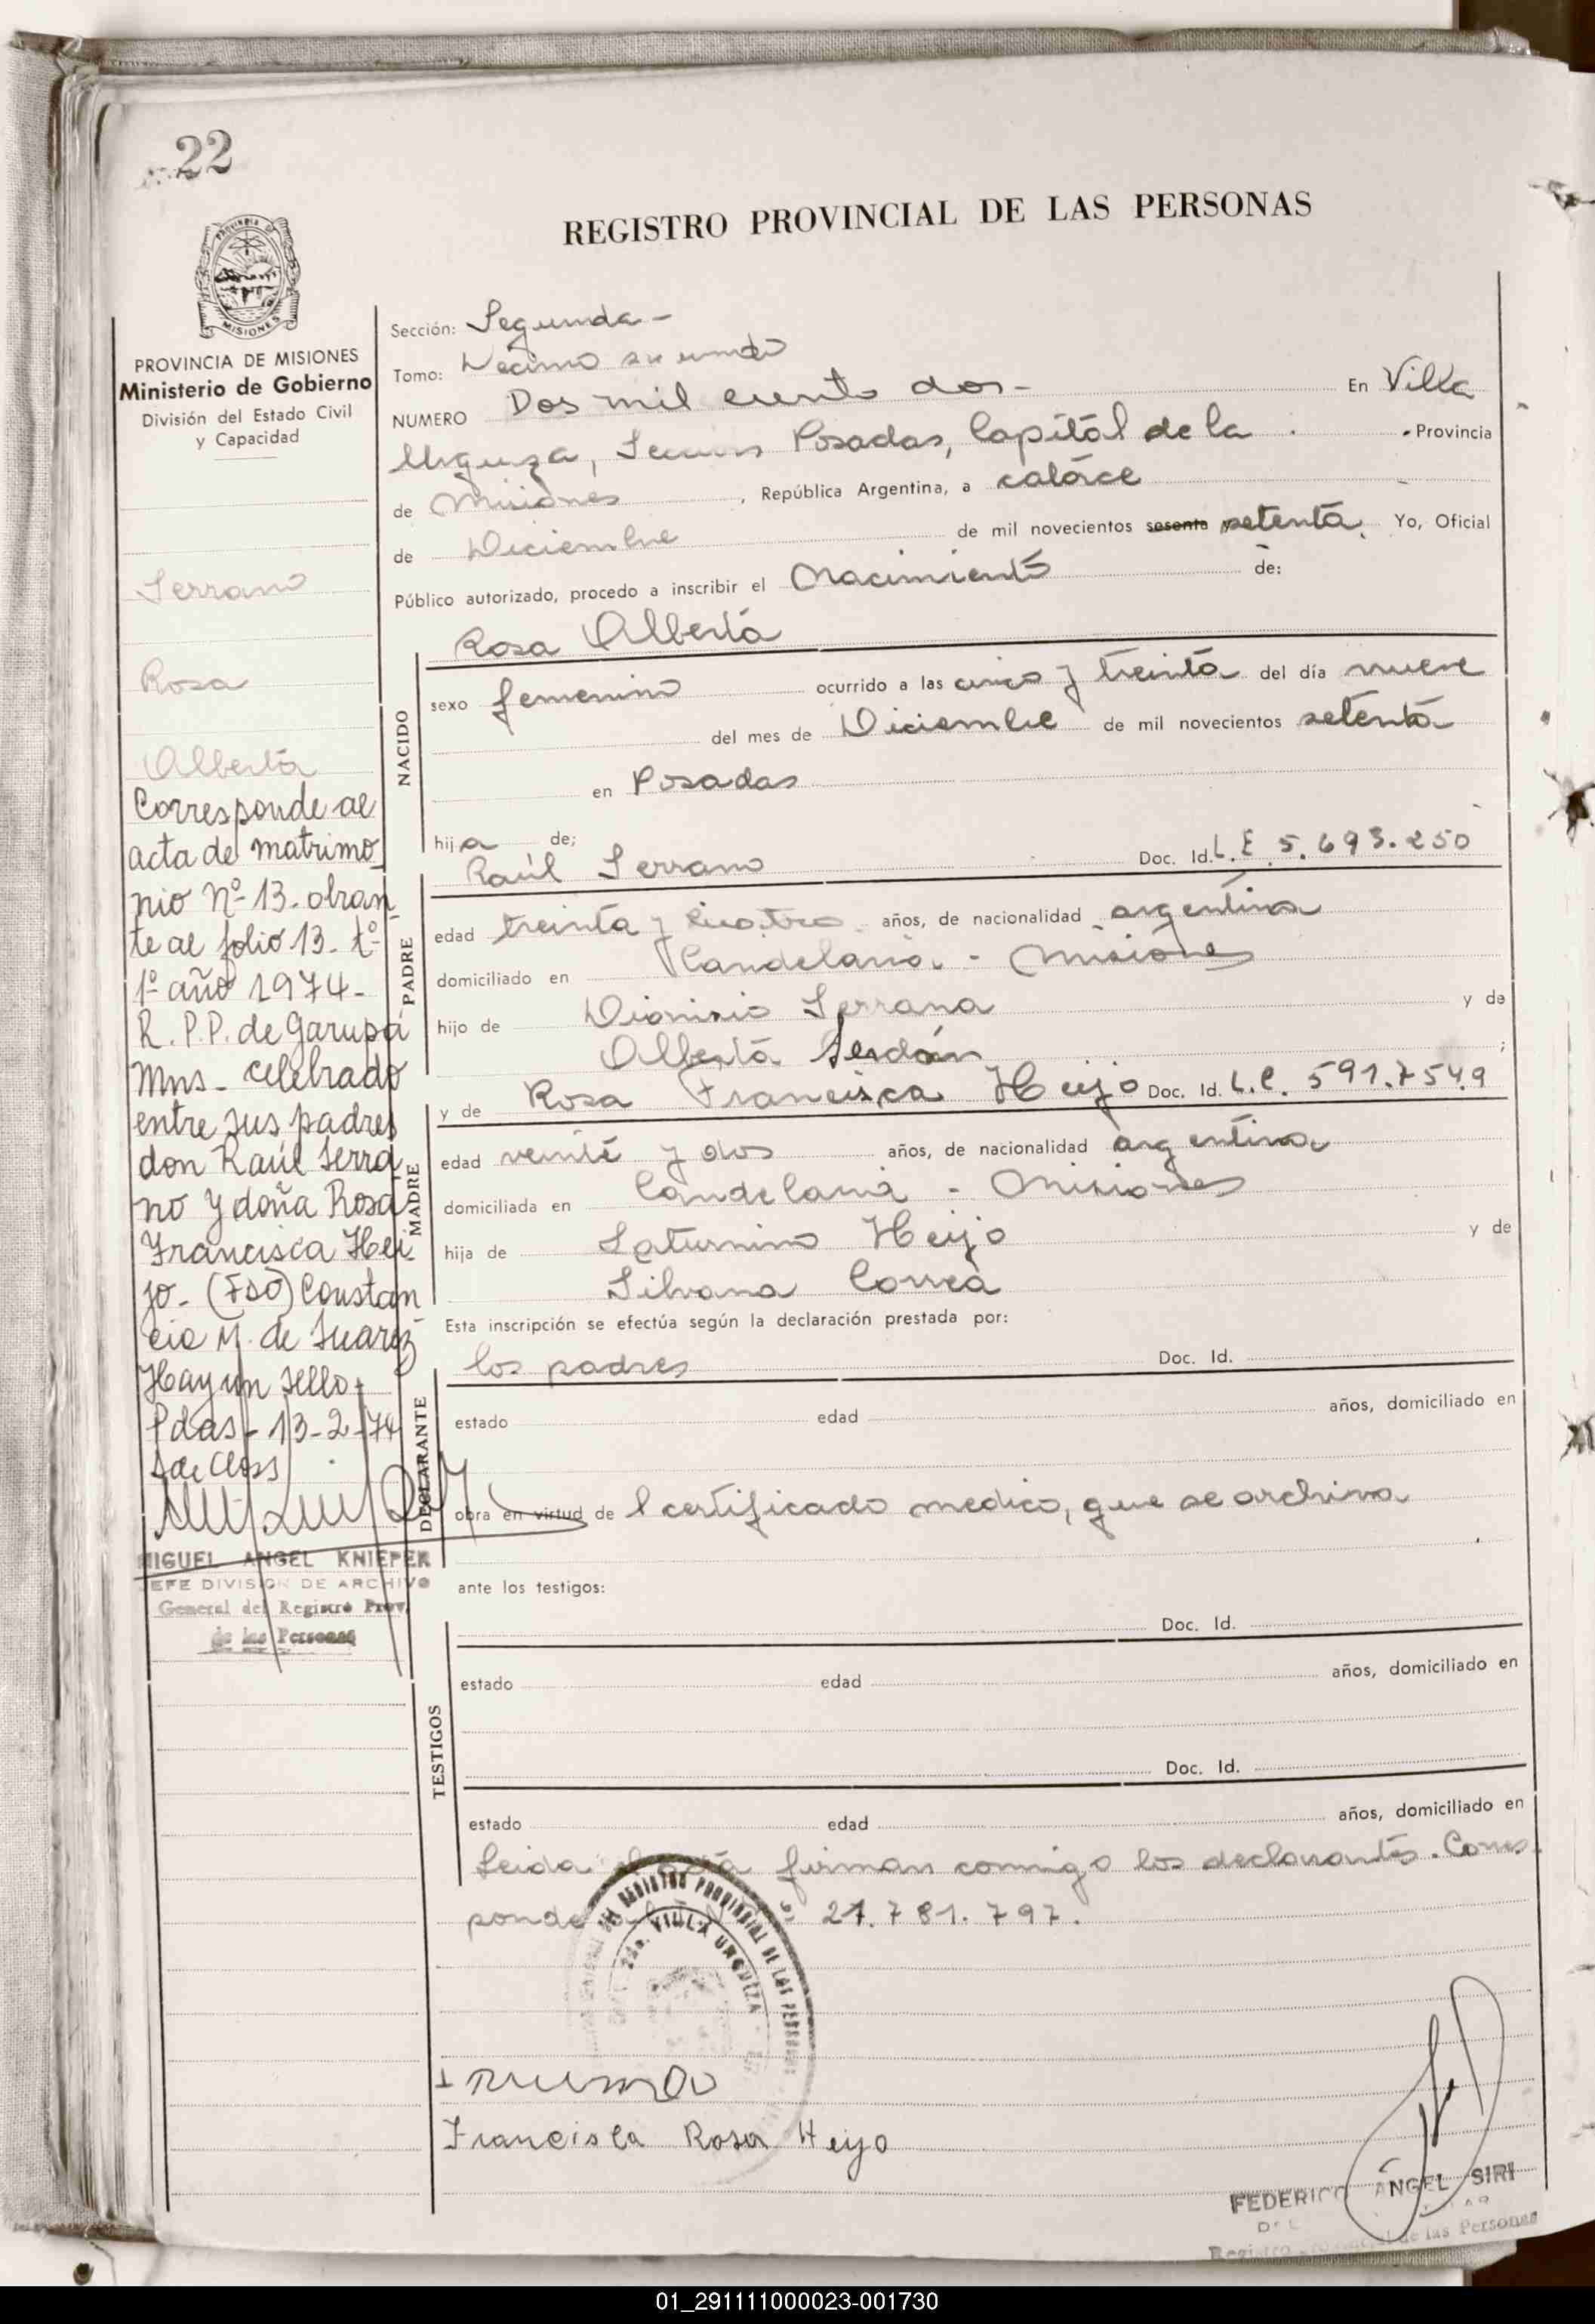 22
REGISTRO PROVINCIAL DE LAS PERSONAS
PROVINCIA DE MISIONES
Ministerio de Gobierno
División del Estado Civil
y Capacidad
Serrano
Rosa
Alberta
Corresponde al
acta de matrimo
nio Nº 13. obran
te al folio 13. tº
1º año 1974-
R. P.P. de Garupá
Mns. celebrado
entre sus padres
don Raúl Serra
no y doña Rosa
Francisca Hei
jo- (FDO) Constan
cia M. de Suarez
Hay un sello.
Pdas- 13-2-74
MIGUEL ANGEL KNIEPER
JEFE DIVISION DE ARCHIVO
General del Registro Prov.
de las Personas
Sección: Segunda-
Tomo: Decimo
NUMERO Dos mil ciento dos- En Villa
Urquiza, Posadas, Capital de la Provincia
de Misiones, República Argentina, a catorce
de Diciembre de mil novecientos sesenta setenta. Yo, Oficial
Público autorizado, procedo a inscribir el Nacimiento de:
Rosa Alberta
NACIDO
sexo femenino ocurrido a las cinco y treinta del día nueve
del mes de Diciembre de mil novecientos setenta
en Posadas
hija de;
Raúl Serrano Doc. Id. L.E 5.693.250
PADRE
edad treinta y cuatro años, de nacionalidad argentina
domiciliado en Candelaria. - Misiones
hijo de Dionisio Serrano y de
Alberta ;
y de Rosa Francisca Heijo Doc. Id. L.C. 591.7549
MADRE
edad veinte y dos años, de nacionalidad argentina
domiciliada en Candelaria - Misiones
hija de Saturnino Heijo y de
Silvana Correa
Esta inscripción se efectúa según la declaración prestada por:
los padres Doc. Id.
DECLARANTE
estado edad años, domiciliado en
obra en virtud de l certificado medico, que se archiva
ante los testigos:
Doc. Id.
TESTIGOS
estado edad años, domiciliado en
Doc. Id.
estado edad años, domiciliado en
Leida el acta firman conmigo los declarantes. Corres
ponde 21.781.797.
VILLA URQUIZA
Francisca Rosa Heijo
FEDERICO ANGEL SIRI
Registro de las Personas
01_291111000023-001730